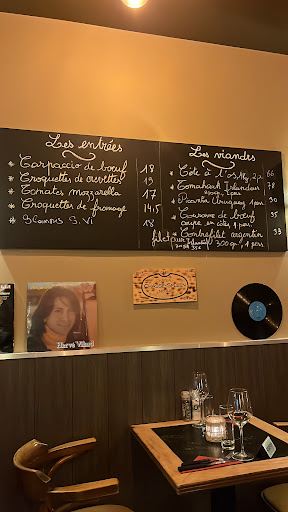 Les entrées
* Carpaccio de bœuf 18
* Croquettes de crevettes 19
* Tomates mozzarella 17
* Croquettes de fromage 14,5
* Scampis S.V. 18
Les viandes
* Côte à l'os, 2p. 66
* Tomahawk Irlandais 78
* Uruguay, 1 pers 30
* Couronne de bœuf 95
* Contrefilet argentin 33
filet pur 300 gr, 1 pers
Hervé Vilard